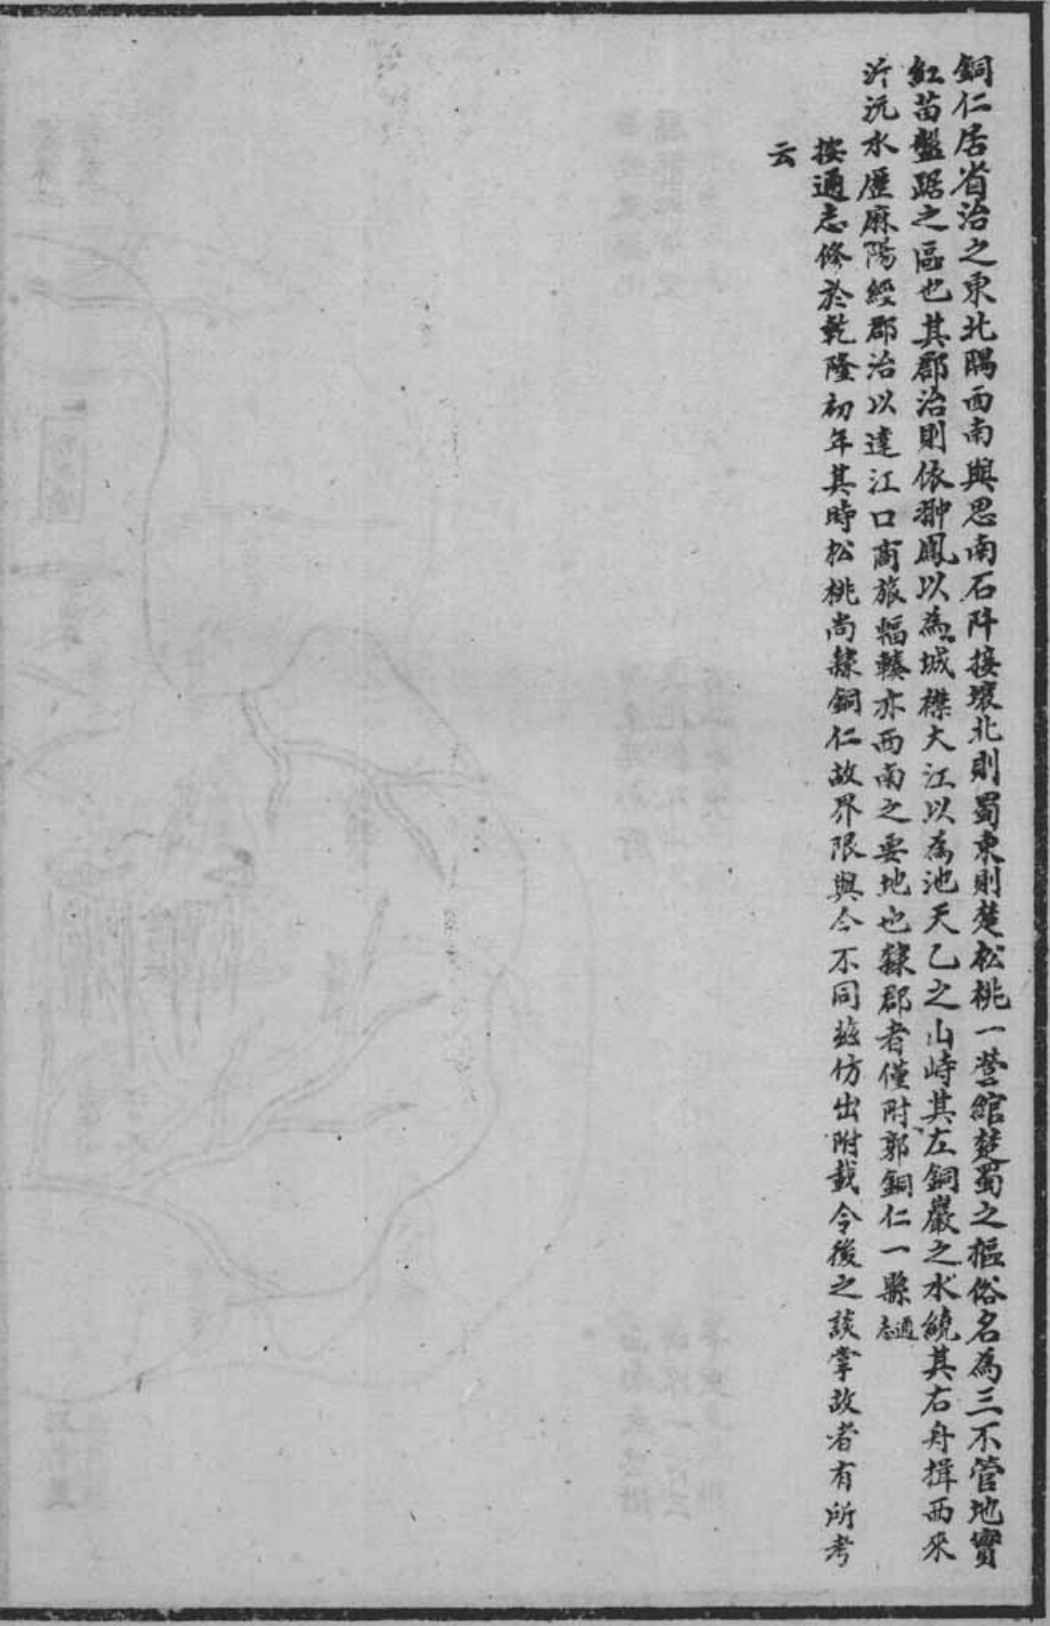 銅仁居省治之東北隅西南與思南石阡接壤北則蜀東則楚松桃一營綰楚蜀之樞俗名為三不管地實
紅苗盤踞之區也其郡治則依翀鳳以為城襟大江以為池天乙之山峙其左銅巖之水繞其右舟揖西來
泝沅水歷麻陽經郡治以達江口商旅輻輳亦西南之要地也隸郡者僅附郭銅仁一縣通志
按通志修於乾隆初年其時松桃尚隸銅仁故界限與今不同茲仿出附載令後之談掌故者有所考
云